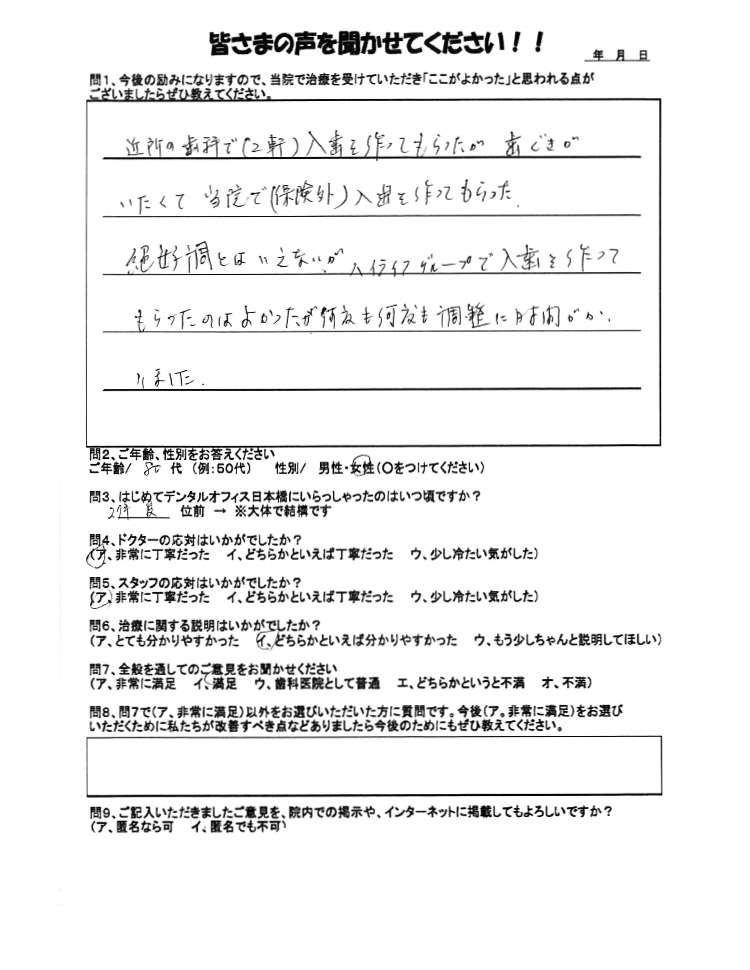 皆さまの声を聞かせてください！！
年 月 日
問1、今後の励みになりますので、当院で治療を受けていただき「ここがよかった」と思われる点が
ございましたらぜひ教えてください。
近所の歯科で(2軒)入歯を作ってもらったが 歯ぐきが
いたくて 当院で(保険外)入歯を作ってもらった.
絶好調とはいえないが ハイライフグループで入歯を作って
もらったのはよかったが何度も何度も調整に時間がかゝ
りました.
問2、ご年齢、性別をお答えください
ご年齢/ 80 代 (例:50代) 性別/ 男性・女性(○をつけてください)
問3、はじめてデンタルオフィス日本橋にいらっしゃったのはいつ頃ですか？
2年 位前 → ※大体で結構です
問4、ドクターの応対はいかがでしたか？
(ア、非常に丁寧だった イ、どちらかといえば丁寧だった ウ、少し冷たい気がした)
問5、スタッフの応対はいかがでしたか？
(ア、非常に丁寧だった イ、どちらかといえば丁寧だった ウ、少し冷たい気がした)
問6、治療に関する説明はいかがでしたか？
(ア、とても分かりやすかった イ、どちらかといえば分かりやすかった ウ、もう少しちゃんと説明してほしい)
問7、全般を通してのご意見をお聞かせください
(ア、非常に満足 イ、満足 ウ、歯科医院として普通 エ、どちらかというと不満 オ、不満)
問8、問7で(ア、非常に満足)以外をお選びいただいた方に質問です。今後(ア。非常に満足)をお選び
いただくために私たちが改善すべき点などありましたら今後のためにもぜひ教えてください。
問9、ご記入いただきましたご意見を、院内での掲示や、インターネットに掲載してもよろしいですか？
(ア、匿名なら可 イ、匿名でも不可)